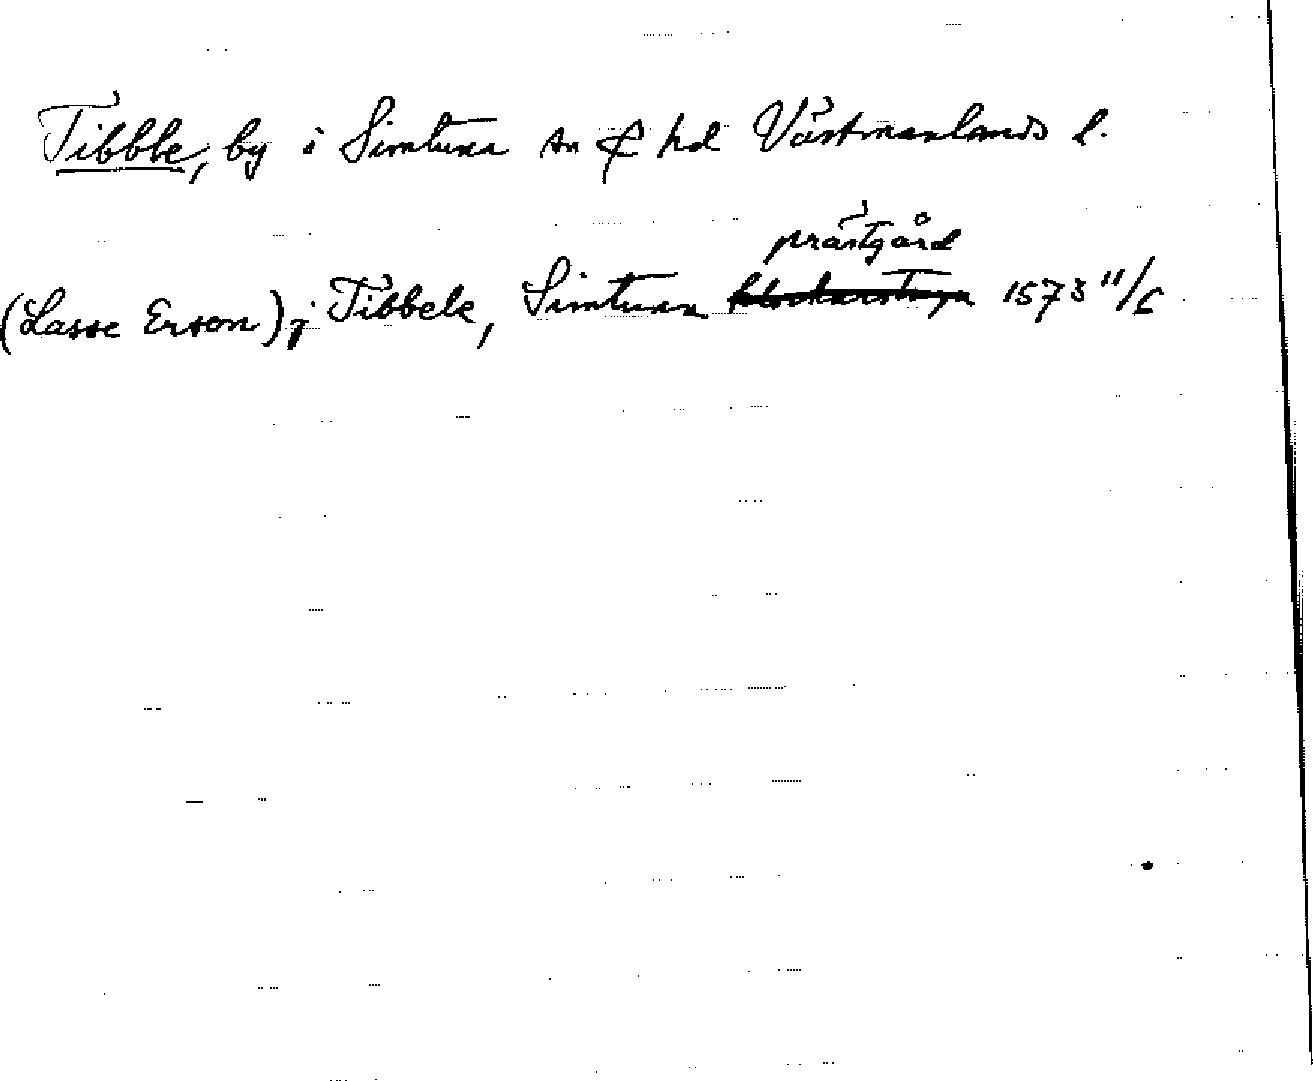 Tibble, by i Simtuna sn ₵ hd Västmanlands l.
prästgård
(Lasse Erson) j Tibbele, Simtuna klockarstuga 1573 11/6